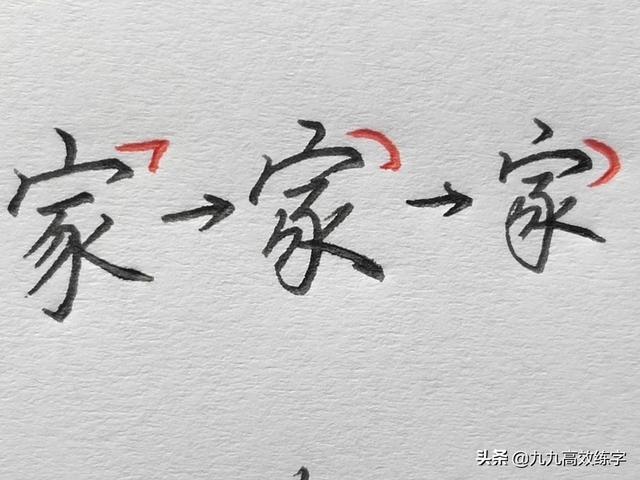 家→家→家
头条 @九九高效练字